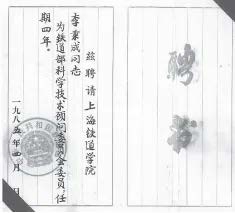 聘书
兹聘请上海铁道学院
李秉成同志
为铁道部科学技术顾问委员会委员，任
期四年。
一九八五年 月 日